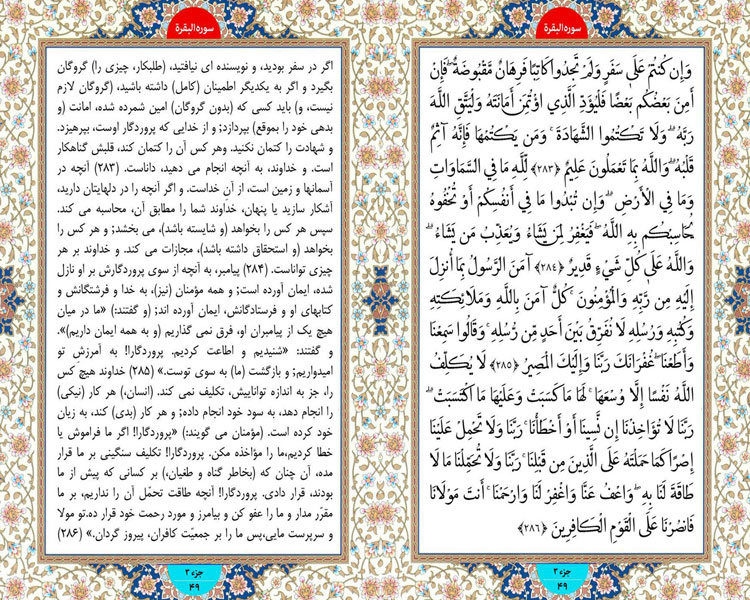 سوره‌البقرة
وَإِن كُنتُمْ عَلَىٰ سَفَرٍ وَلَمْ تَجِدُوا كَاتِبًا فَرِهَانٌ مَّقْبُوضَةٌ ۖ فَإِنْ
أَمِنَ بَعْضُكُم بَعْضًا فَلْيُؤَدِّ الَّذِي اؤْتُمِنَ أَمَانَتَهُ وَلْيَتَّقِ اللَّهَ
رَبَّهُ ۗ وَلَا تَكْتُمُوا الشَّهَادَةَ ۚ وَمَن يَكْتُمْهَا فَإِنَّهُ آثِمٌ
قَلْبُهُ ۗ وَاللَّهُ بِمَا تَعْمَلُونَ عَلِيمٌ ﴿۲۸۳﴾ لِّلَّهِ مَا فِي السَّمَاوَاتِ
وَمَا فِي الْأَرْضِ ۗ وَإِن تُبْدُوا مَا فِي أَنفُسِكُمْ أَوْ تُخْفُوهُ
يُحَاسِبْكُم بِهِ اللَّهُ ۖ فَيَغْفِرُ لِمَن يَشَاءُ وَيُعَذِّبُ مَن يَشَاءُ ۗ
وَاللَّهُ عَلَىٰ كُلِّ شَيْءٍ قَدِيرٌ ﴿۲۸۴﴾ آمَنَ الرَّسُولُ بِمَا أُنزِلَ
إِلَيْهِ مِن رَّبِّهِ وَالْمُؤْمِنُونَ ۚ كُلٌّ آمَنَ بِاللَّهِ وَمَلَائِكَتِهِ
وَكُتُبِهِ وَرُسُلِهِ لَا نُفَرِّقُ بَيْنَ أَحَدٍ مِّن رُّسُلِهِ ۚ وَقَالُوا سَمِعْنَا
وَأَطَعْنَا ۖ غُفْرَانَكَ رَبَّنَا وَإِلَيْكَ الْمَصِيرُ ﴿۲۸۵﴾ لَا يُكَلِّفُ
اللَّهُ نَفْسًا إِلَّا وُسْعَهَا ۚ لَهَا مَا كَسَبَتْ وَعَلَيْهَا مَا اكْتَسَبَتْ ۗ
رَبَّنَا لَا تُؤَاخِذْنَا إِن نَّسِينَا أَوْ أَخْطَأْنَا ۚ رَبَّنَا وَلَا تَحْمِلْ عَلَيْنَا
إِصْرًا كَمَا حَمَلْتَهُ عَلَى الَّذِينَ مِن قَبْلِنَا ۚ رَبَّنَا وَلَا تُحَمِّلْنَا مَا لَا
طَاقَةَ لَنَا بِهِ ۖ وَاعْفُ عَنَّا وَاغْفِرْ لَنَا وَارْحَمْنَا ۚ أَنتَ مَوْلَانَا
فَانصُرْنَا عَلَى الْقَوْمِ الْكَافِرِينَ ﴿۲۸۶﴾
جزء ۳
۴۹
سوره‌البقرة
اگر در سفر بودید، و نویسنده ای نیافتید، (طلبکار، چیزی را) گروگان
بگیرد و اگر به یکدیگر اطمینان (کامل) داشته باشید، (گروگان لازم
نیست، و) باید کسی که (بدون گروگان) امین شمرده شده، امانت (و
بدهی خود را بموقع) بپردازد؛ و از خدایی که پروردگار اوست، بپرهیزد.
و شهادت را کتمان نکنید. وهر کس آن را کتمان کند، قلبش گناهکار
است. و خداوند، به آنچه انجام می دهید، داناست. (۲۸۳) آنچه در
آسمانها و زمین است، از آنِ خداست. و اگر آنچه را در دلهایتان دارید،
آشکار سازید یا پنهان، خداوند شما را مطابق آن، محاسبه می کند.
سپس هر کس را بخواهد (و شایسته باشد)، می بخشد; و هر کس را
بخواهد (و استحقاق داشته باشد)، مجازات می کند. و خداوند بر هر
چیزی تواناست. (۲۸۴) پیامبر، به آنچه از سوی پروردگارش بر او نازل
شده، ایمان آورده است; و همه مؤمنان (نیز)، به خدا و فرشتگانش و
کتابهای او و فرستادگانش، ایمان آورده اند; (و گفتند:) «ما در میان
هیچ یک از پیامبران او، فرق نمی گذاریم (و به همه ایمان داریم)».
و گفتند: «شنیدیم و اطاعت کردیم. پروردگارا! به آمرزشِ تو
امیدواریم; و بازگشت (ما) به سوی توست.» (۲۸۵) خداوند هیچ کس
را، جز به اندازه تواناییش، تکلیف نمی کند. (انسان،) هر کار (نیکی)
را انجام دهد، به سود خود انجام داده; و هر کار (بدی) کند، به زیان
خود کرده است. (مؤمنان می گویند:) «پروردگارا! اگر ما فراموش یا
خطا کردیم،ما را مؤاخذه مکن. پروردگارا! تکلیف سنگینی بر ما قرار
مده، آن چنان که (بخاطر گناه و طغیان،) بر کسانی که پیش از ما
بودند، قرار دادی. پروردگارا! آنچه طاقت تحمّل آن را نداریم، بر ما
مقرّر مدار و ما را عفو کن و بیامرز و مورد رحمت خود قرار ده.تو مولا
و سرپرست مایی،پس ما را بر جمعیّت کافران، پیروز گردان.» (۲۸۶)
جزء ۳
۴۹